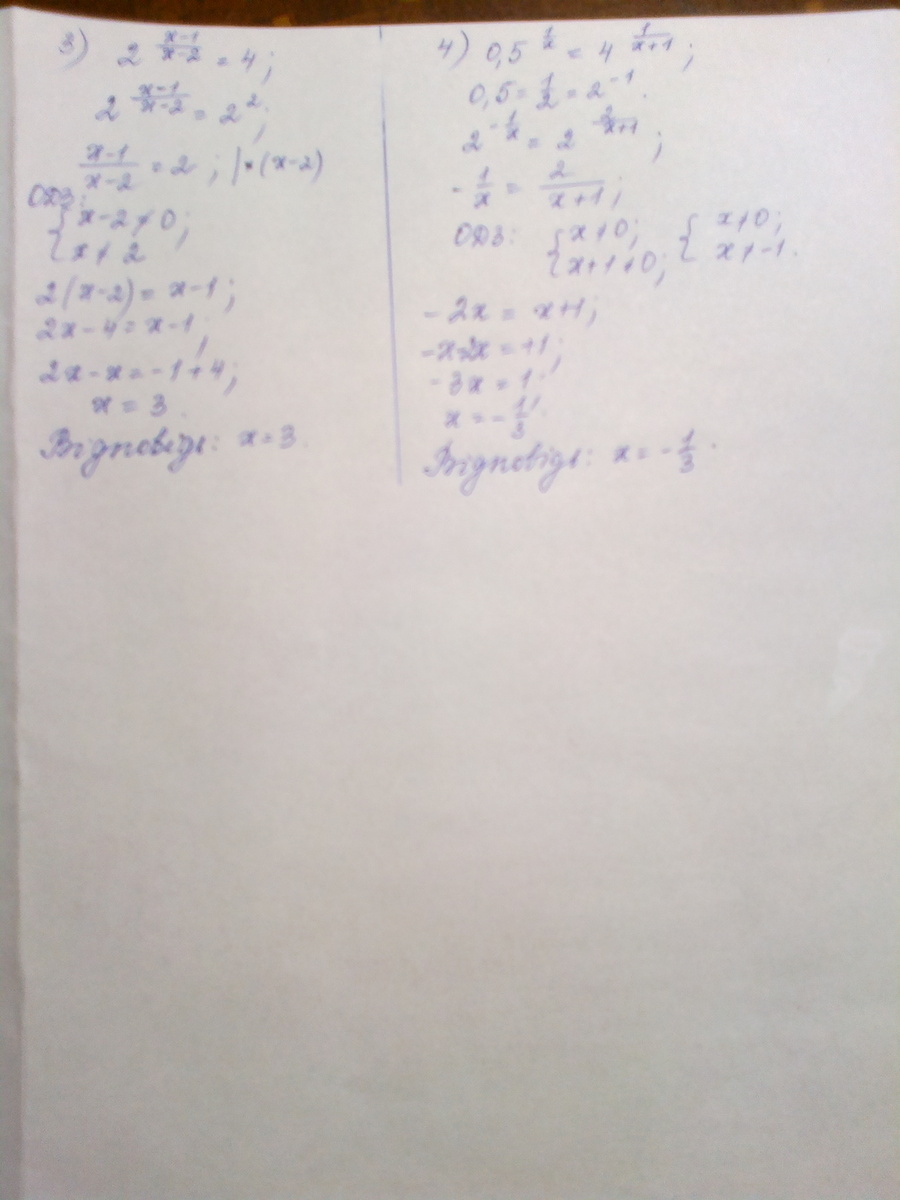 3) 2^((x-1)/(x-2)) = 4;
2^((x-1)/(x-2)) = 2^2;
(x-1)/(x-2) = 2; | · (x-2)
ОДЗ:
{ x-2 ≠ 0;
x ≠ 2
2(x-2) = x-1;
2x-4 = x-1;
2x-x = -1+4;
x = 3.
Відповідь: x=3.
4) 0,5^(1/x) = 4^(1/(x+1));
0,5 = 1/2 = 2^(-1).
2^(-1/x) = 2^(2/(x+1));
-1/x = 2/(x+1);
ОДЗ: { x≠0; x+1≠0; { x≠0; x≠-1.
-2x = x+1;
-x-2x = +1;
-3x = 1;
x = -1/3.
Відповідь: x = -1/3.